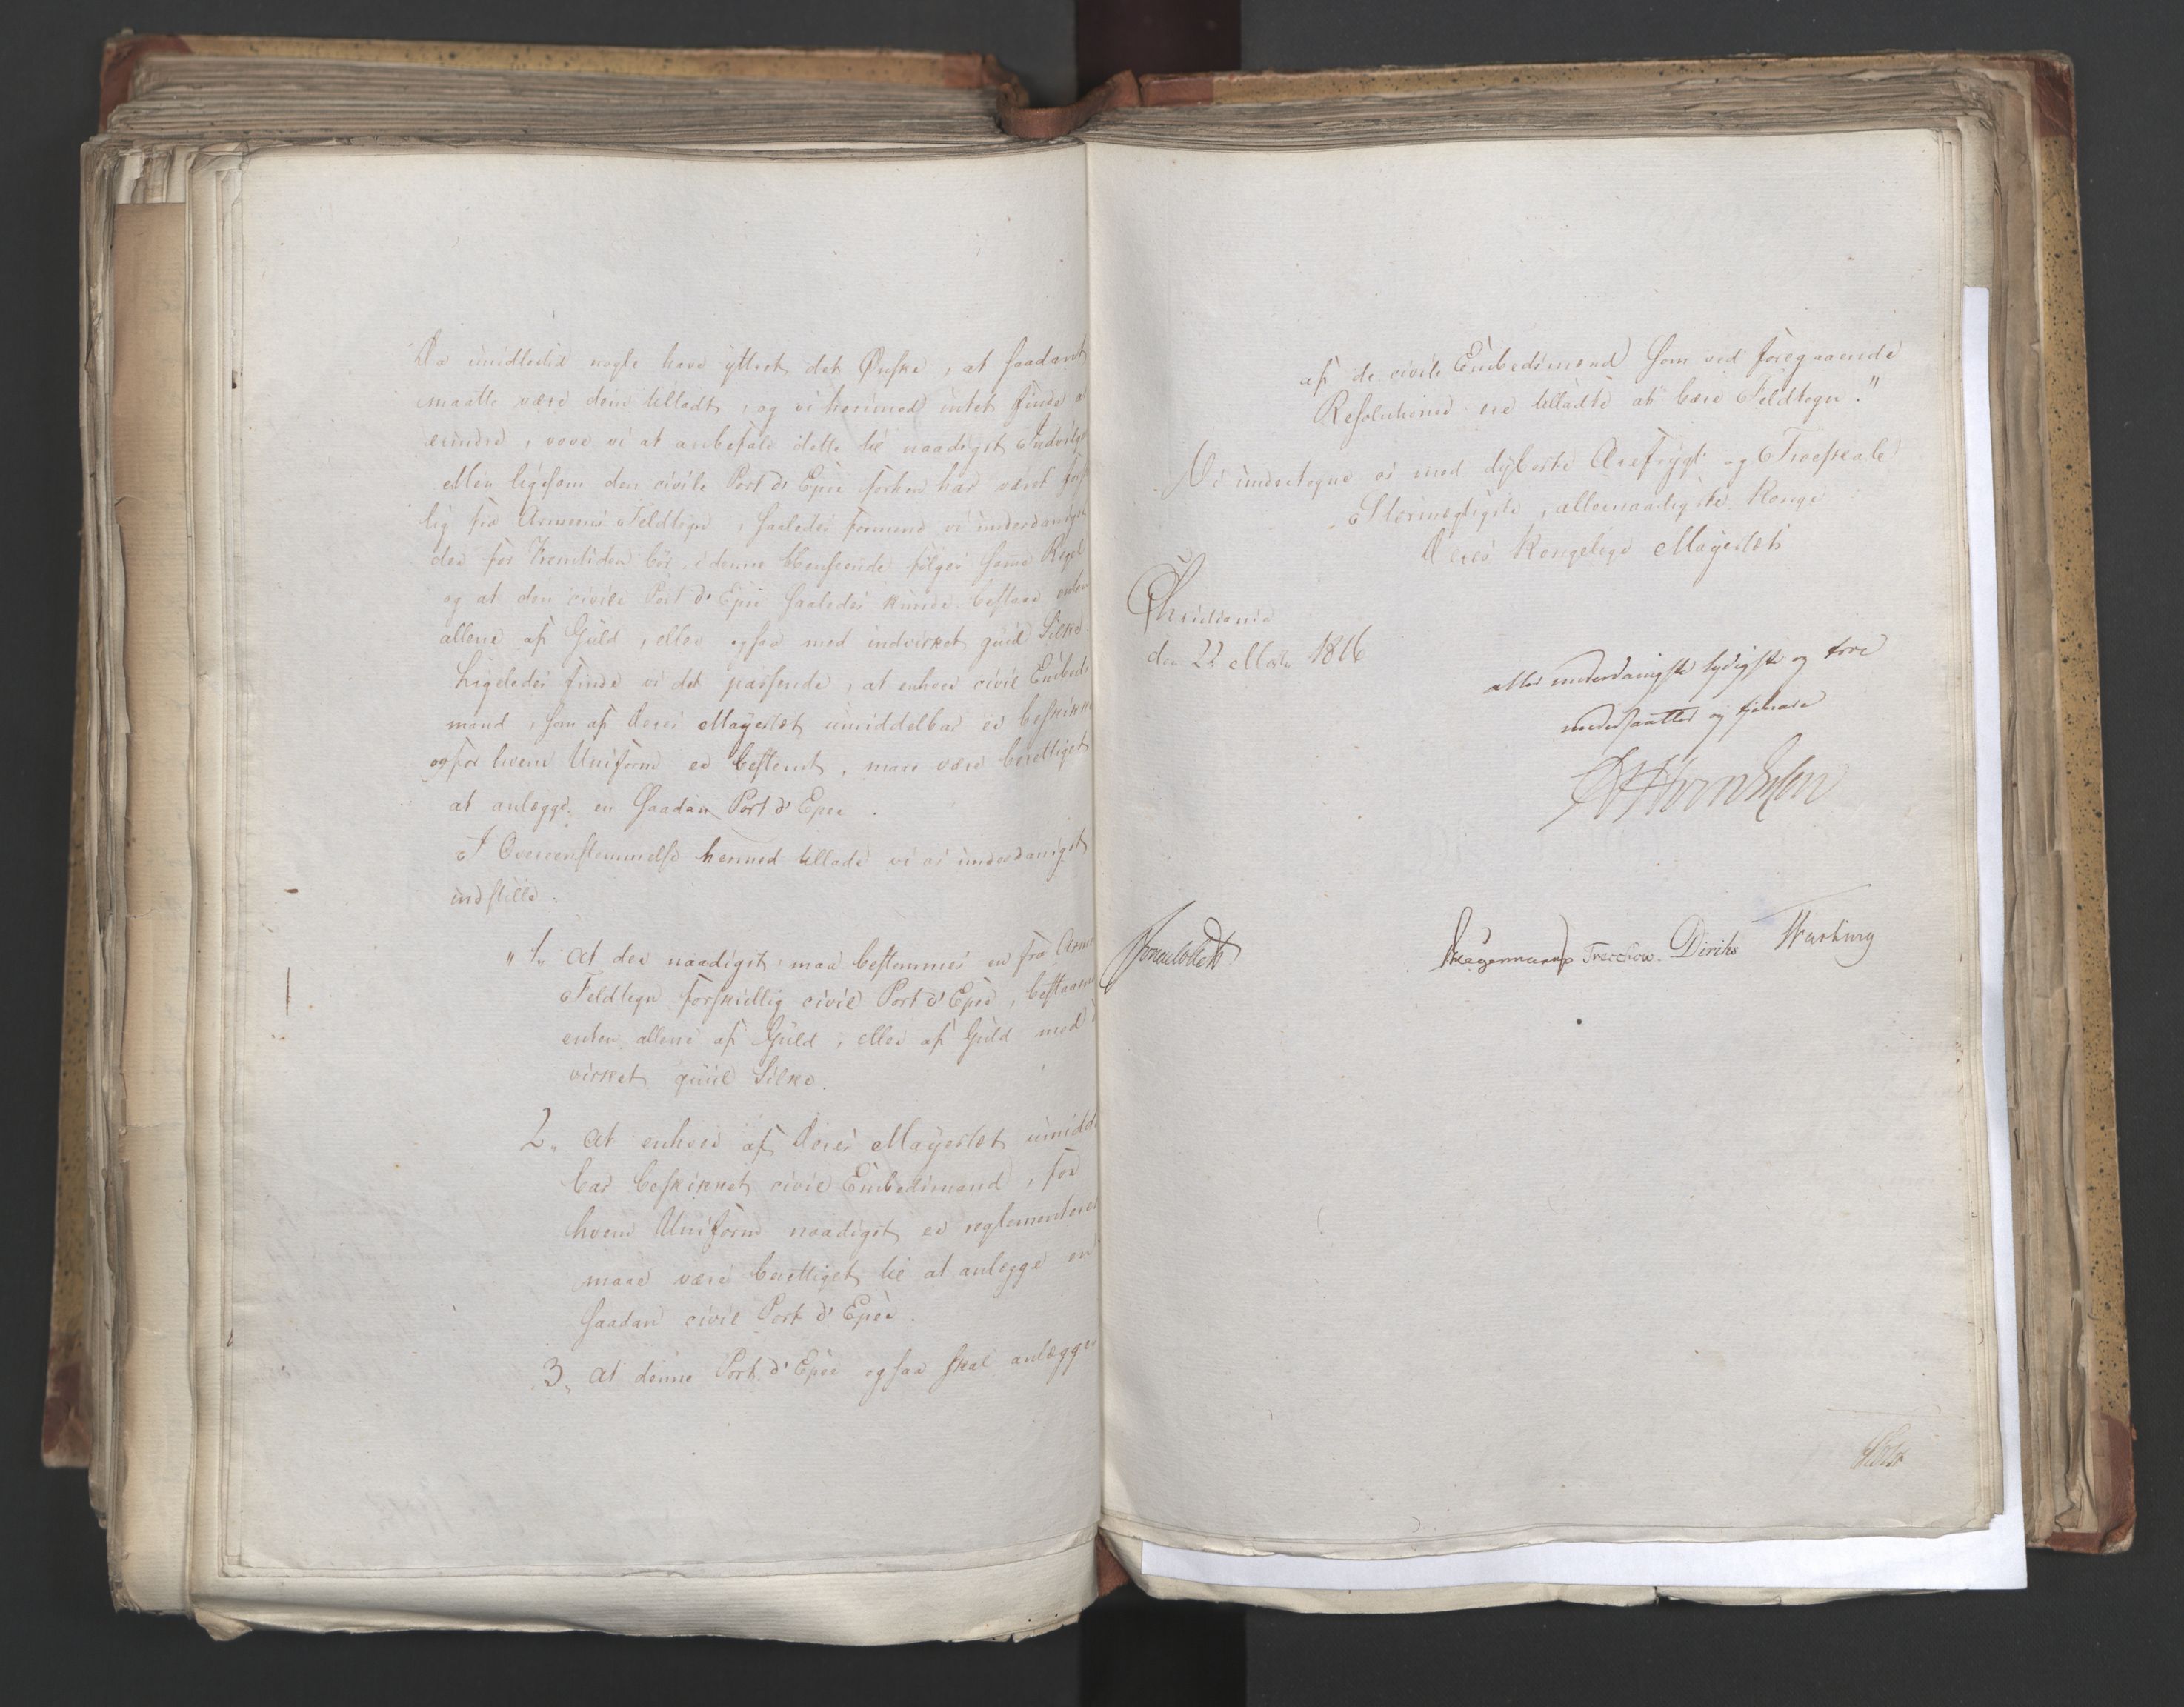 Da imidlertid nogle have yttret det Ønske, at saadant
maatte være dem tilladt, og vi herimod intet finde a
erindre, vove vi at anbefale dette til naadigst Indvilge
Men ligesom den civile Port d'Epee forhen har været forskj
lig fra Armeens Feldtegn, saaledes formene vi underdanigst
der for Fremtiden bør i denne Henseende følges samme Regel
og at den civile Port d'Epee saaledes kunde bestaae enten
allene af Guld, eller ogsaa med indvirket guul Silke.
Ligeledes finde vi det passende, at enhver civil Embeds
mand, som af Deres Mayestæt umiddelbar er beskikke
og for hvem Uniform er bestemt, maae være berettiget
at anlægge en saadan Port d'Epee.
I Overeenstemmelse hermed tillade vi os underdanigst
indstille.
"1, at der naadigst maa bestemmes en fra Arme
Feldtegn forskiellig civil Port d'Epee, bestaaen
enten allene af Guld, eller af Guld med i
virket guul Silke.
2, at enhver af Deres Mayestæt umidde
bar beskikket civil Embedsmand, for
hvem Uniform naadigst er reglementeret
maae være berettiget til at anlægge en
saadan civil Port d'Epée.
3, at denne Port d'Epee ogsaa skal anlægges
af de civile Embedsmænd som ved foregaaende
Resolutioner ere tilladte at bære Feldtegn."
Vi undertegne os med dybeste Ærefrygt og Troeskab
Stormægtigste, allernaadigste Konge
Deres Kongelige Mayestæts
Christiania
den 22 Marts 1816
aller underdanigste lydigste og troe
undersaatter og tjenere
Sommerhielm
Krogh
Hegermann Treschow. Diriks Wasberg
Holst